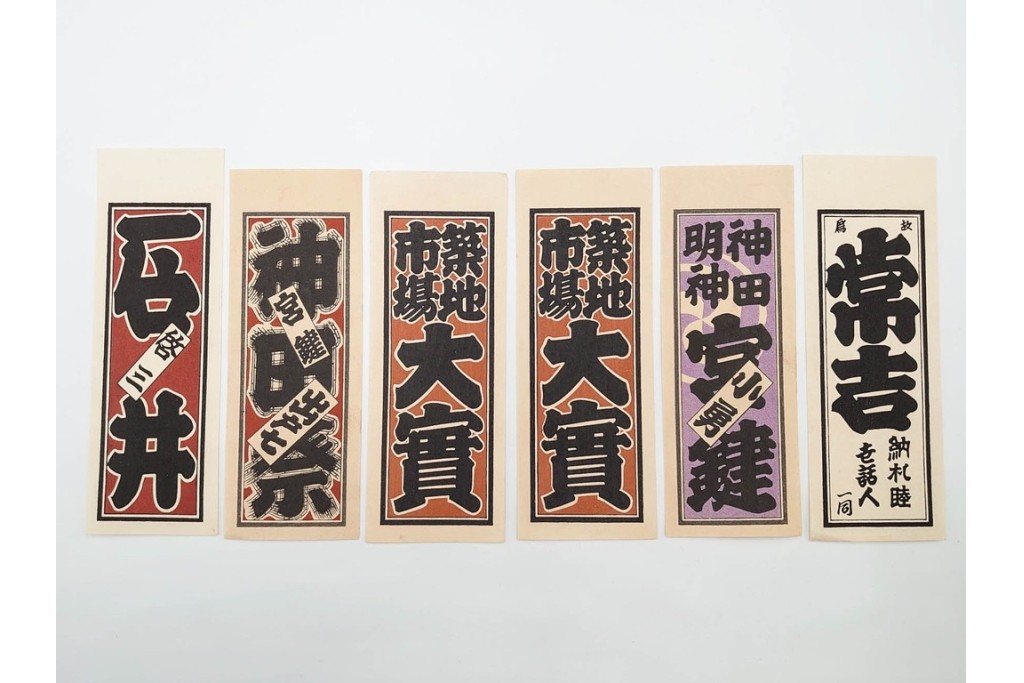 石井
神田祭
宮鍵
築地
市場
大實
築地
市場
大實
神田
明神
宮鍵
小勇
故
爲
常吉
納札睦
世話人
一同